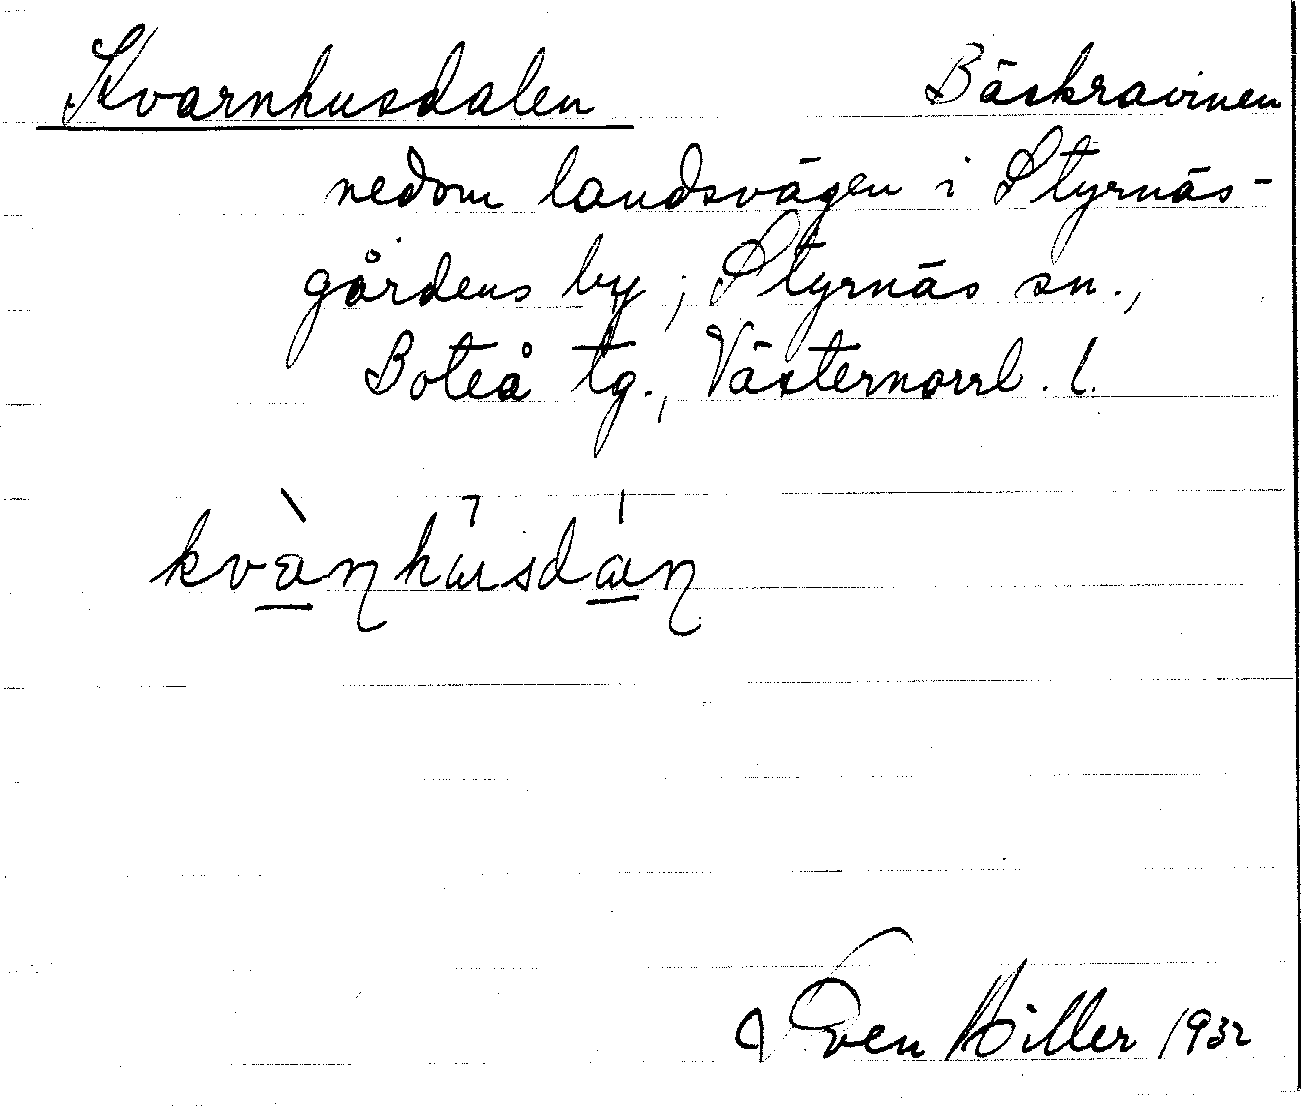 Kvarnhusdalen Bäckravinen
nedom landsvägen i Styrnäs-
gårdens by, Styrnäs sn.,
Boteå tg., Västernorrl. l.
kvànhúsdán
Sven Hiller 1932